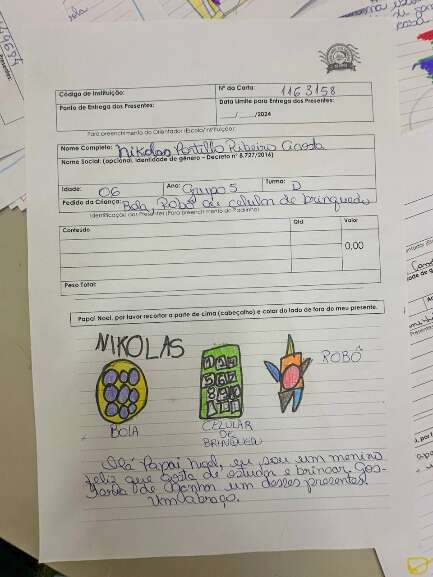 Código de Instituição:
Nº da Carta: 1163158
Ponto de Entrega dos Presentes:
Data Limite para Entrega dos Presentes:
___/___/2024
Para preenchimento do Orientador (Escola/Instituição):
Nome Completo: Nikolas Portillo Ribeiro Acosta
Nome Social: (opcional, identidade de gênero – Decreto nº 8.727/2016)
Idade: 06 Ano: Grupo 5 Turma: D
Pedido da Criança: Bola, Robô ou celular de brinquedo
Identificação dos Presentes (Para preenchimento do Padrinho)
Conteúdo Qtd. Valor
0,00
Peso Total:
Papai Noel, por favor recortar a parte de cima (cabeçalho) e colar do lado de fora do meu presente.
NIKOLAS
ROBÔ
BOLA
CELULAR
DE
Olá Papai Noel, eu sou um menino
feliz que gosta de estudar e brincar. Gos-
taria de ganhar um desses presentes!
Um abraço.